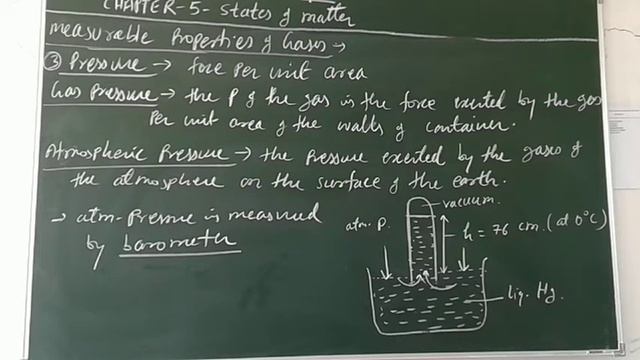 CHAPTER-5- States of matter
measurable Properties of Gases →
③ Pressure → force Per unit area
Gas Pressure → the P of the gas is the force exerted by the gas
Per unit area of the walls of container.
Atmospheric Pressure → the Pressure exerted by the gases of
the atmosphere on the surface of the earth.
→ atm-Pressure is measured
by barometer
vacuum.
atm. P.
h = 76 cm. (at 0°C)
liq. Hg.